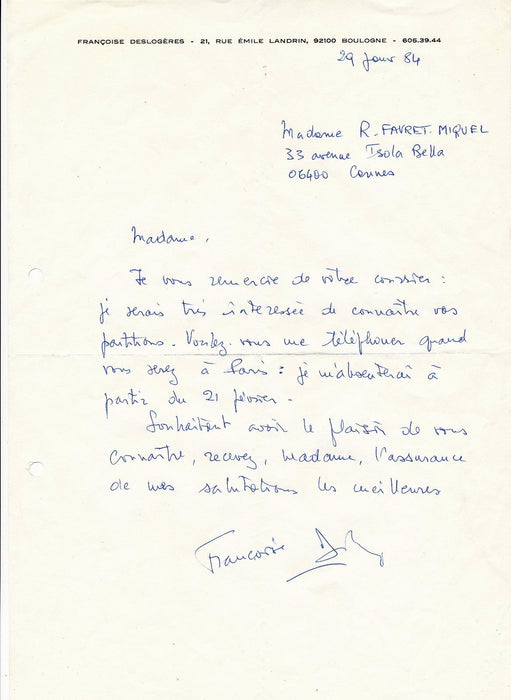 FRANÇOISE DESLOGÈRES - 21, RUE ÉMILE LANDRIN, 92100 BOULOGNE - 605.39.44
29 janv 84
Madame R. FAVRET. MIQUEL
33 avenue Isola Bella
06400 Cannes
Madame,
Je vous remercie de votre courrier :
je serais très intéressée de connaître vos
partitions. Voulez-vous me téléphoner quand
vous serez à Paris : je m'absenterai à
partir du 21 février.
Souhaitant avoir le plaisir de vous
connaître, recevez, Madame, l'assurance
de mes salutations les meilleures
Françoise